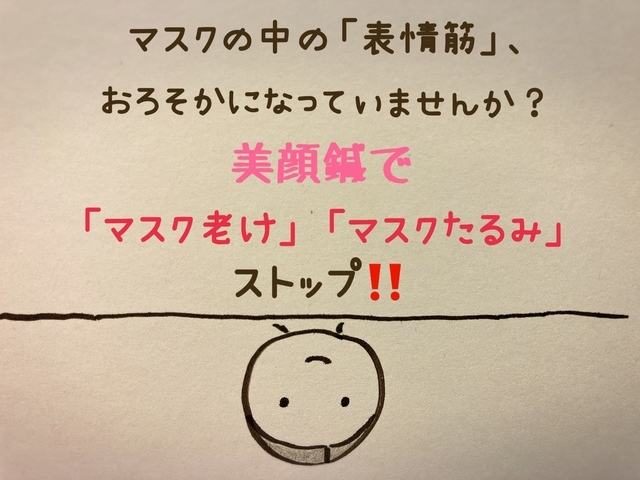 マスクの中の「表情筋」、
おろそかになっていませんか？
美顔鍼で
「マスク老け」「マスクたるみ」
ストップ‼️